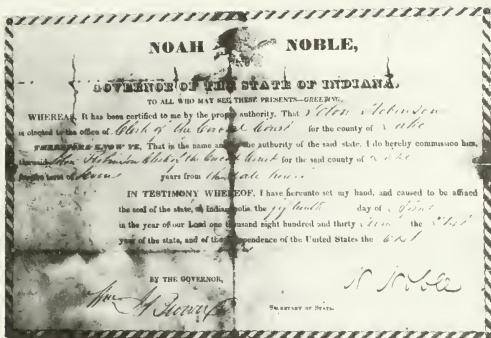 NOAH NOBLE,
GOVERNOR OF THE STATE OF INDIANA,
TO ALL WHO MAY SEE THESE PRESENTS—GREETING,
WHEREAS, It has been certified to me by the proper authority, That Solon Robinson
is elected to the office of Clerk of the Circuit Court for the county of Lake
THEREFORE KNOW YE, That in the name and by the authority of the said state, I do hereby commission him,
the said Solon Robinson Clerk of the Circuit Court for the said county of Lake
for the term of Seven years from the date hereof
IN TESTIMONY WHEREOF, I have hereunto set my hand, and caused to be affixed
the seal of the state, at Indianapolis, the day of
in the year of our Lord one thousand eight hundred and thirty the
year of the state, and of the Independence of the United States the 61st
BY THE GOVERNOR,
N Noble
SECRETARY OF STATE.